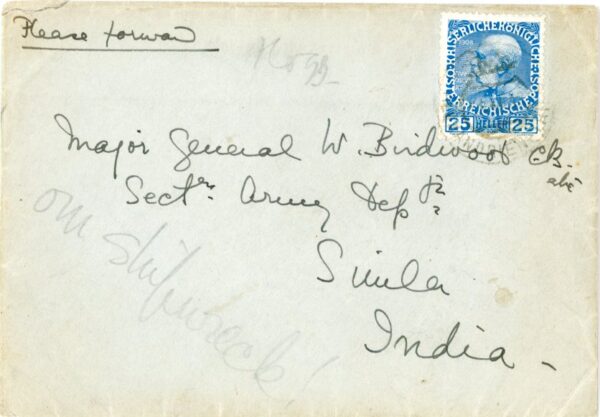 Please forward
KAISERLICHE KÖNIGLICHE ÖSTERREICHISCHE
1908
25 HELLER 25
Major General W. Birdwood CB.
etc
Sectry. Army Dept.
Simla
India -
om shipwreck!